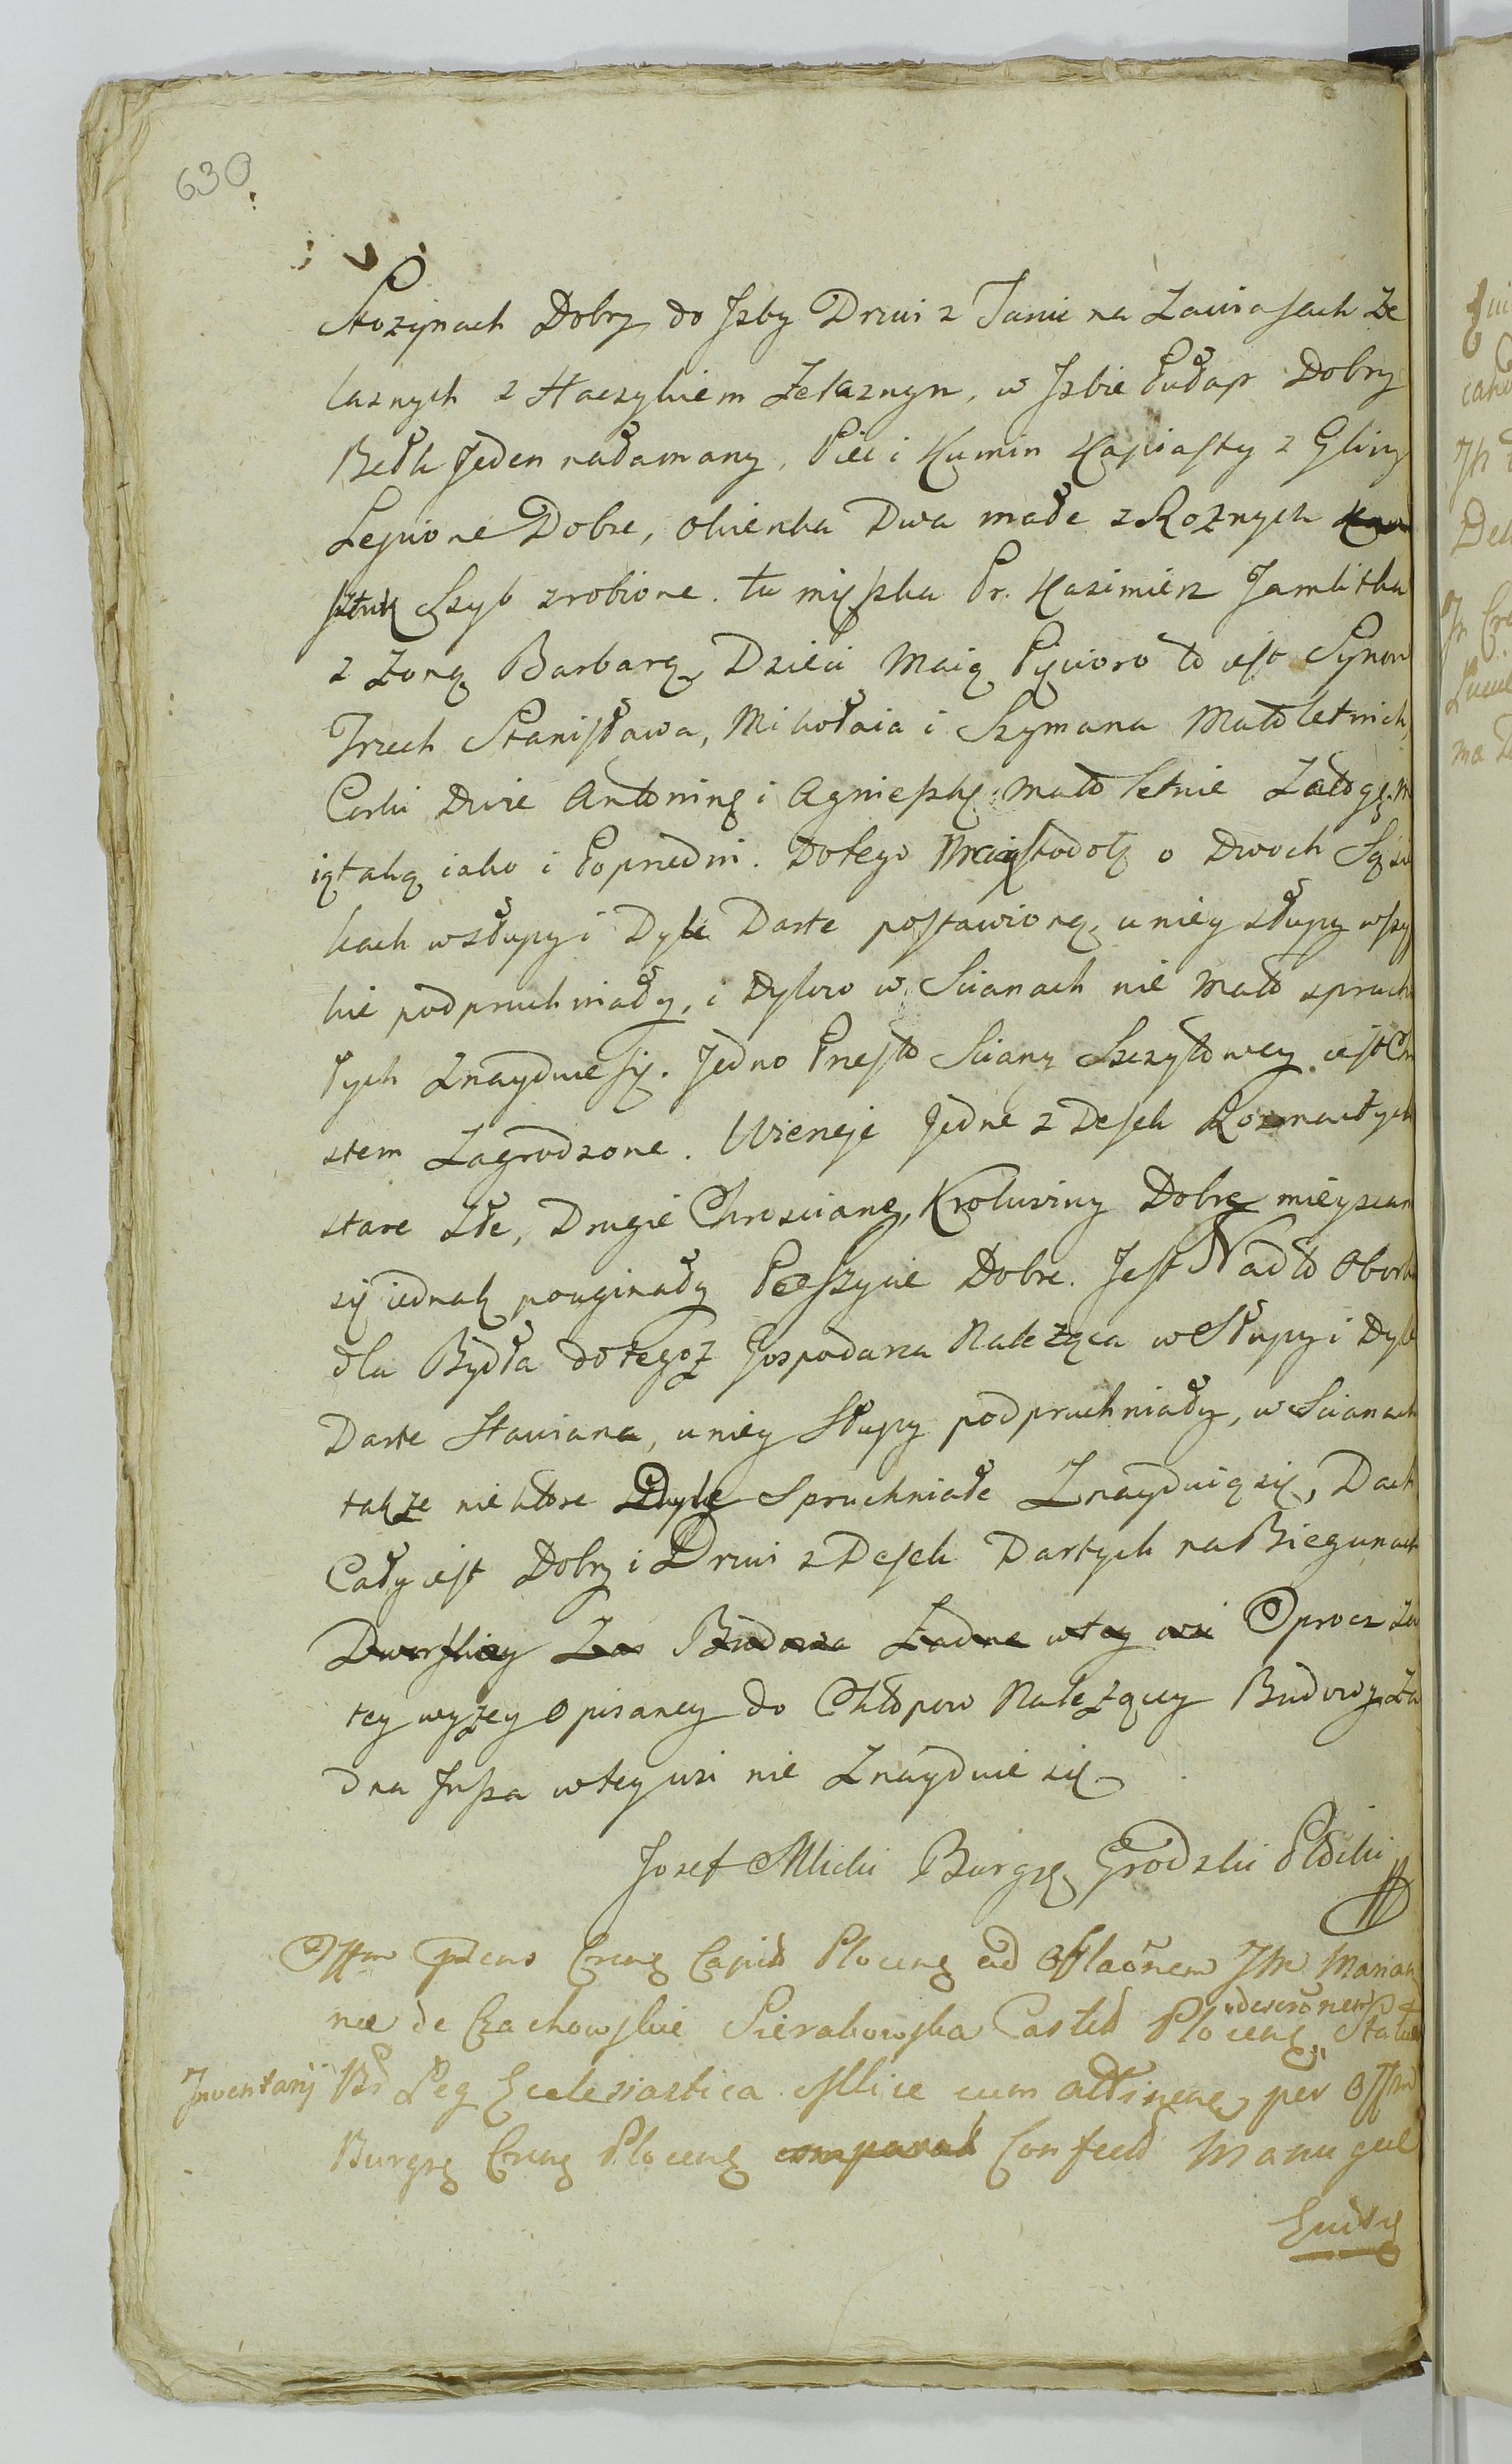 630
Stozynach Dobry do Jzby Drzwi z Tarcic na Zawiasach Że
laznych z Haczykiem Żelaznym, w Jzbie Pułap Dobry
Belk Jeden nałamany, Piec i Kumin Kapiasty z Gliny
Lepione Dobre, okienka Dwa małe z Rożnych
sztuk Szyb zrobione. tu mięszka Pr. Kazimierz Jamlitka
z Żoną Barbarą, Dzieci Maią Pięcioro to iest Synow
Trzech Stanisława, Mikołaia i Szymana Małoletnich,
Corki Dwie Antoninę i Agnieszkę małoletnie Załogę m
ią taką iako i Poprzedni. Do tego Maią stodołę o Dwoch Sąsie
kach w słupy i Dyle Darte postawioną, u niey słupy wszy
kie podpruchniały, i Dylow w Scianach nie mało spruch
łych Znayduie się. Jedno Przęsto Sciany Szczytowey iest Ch
stem Zagrodzone. Wieneje Jedne z Desek Rozmaitych
stare złe, Drugie Chrosciane, Krokwiny Dobre mieyscam
się iednak pouginały Poszycie Dobre. Jest Nadto Obork
dla Bydła do tegoż Gospodarza Należąca w Słupy i Dyle
Darte Stawiana, u niey Słupy podpruchniały, w Scianach
także niektore Dyle Spruchniałe Znayduią się, Dach
Cały iest Dobry i Drzwi z Desek Dartych na Biegunach
Dworskiey Zas Budowa Żadna w tey wsi Oprocz
tey wyżey opisaney do Chłopow Należącey Budowy Ża
dna Jnsza w tey wsi nie Znayduie się
Jozef Mlicki Burgr. Grodzki Płocki
Offm Crense Capit Plocense ad Oblaonem Marian
nae de Czachowskie Sierakowska Castell Plocens
Inventarij Bo Leg Ecclesiastica Mlice cum attinenc per Offm
Burgr Crens Plocens comparat Confect Manu que